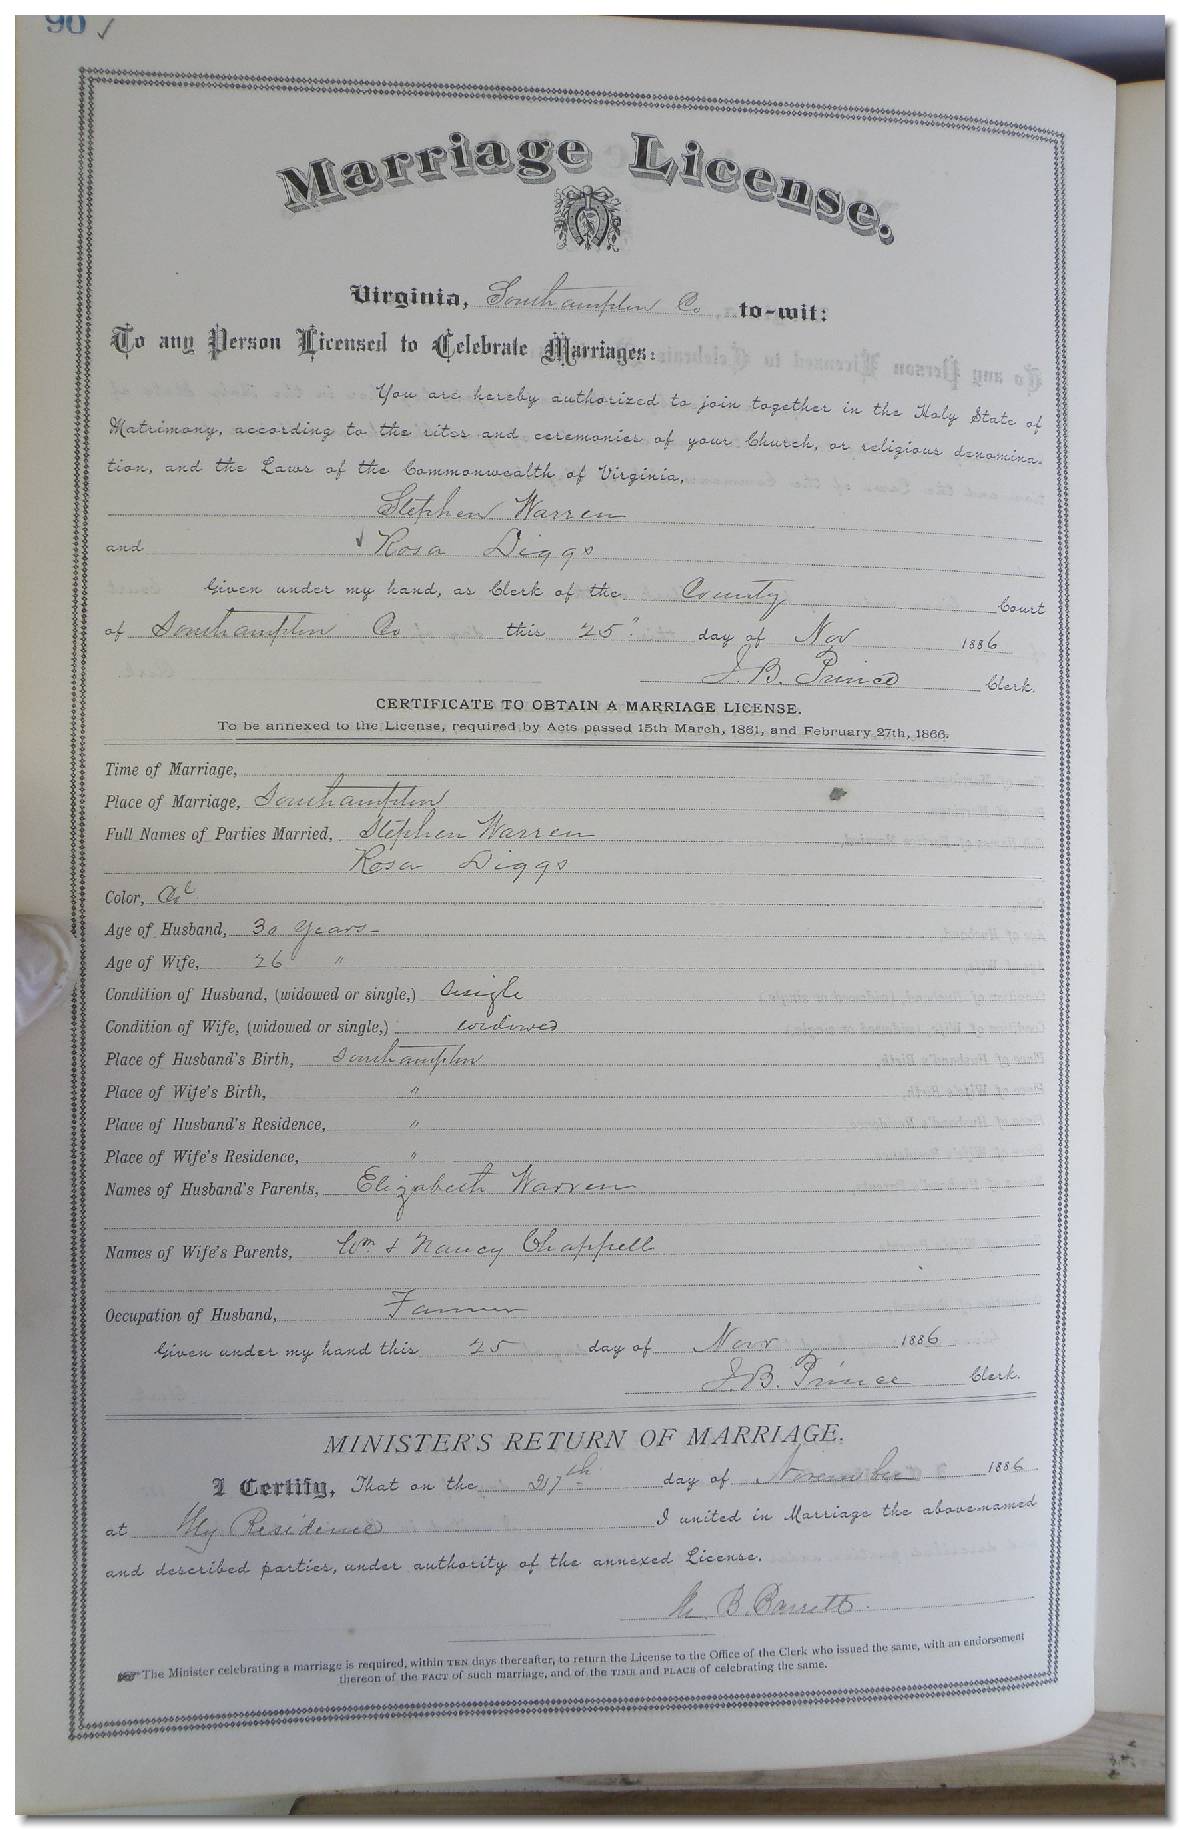 90 ✓
Marriage License.
Virginia, Southampton Co to-wit:
To any Person Licensed to Celebrate Marriages:
You are hereby authorized to join together in the Holy State of
Matrimony, according to the rites and ceremonies of your Church, or religious denomina-
tion, and the Laws of the Commonwealth of Virginia,
Stephen Warren
and ✓ Rosa Diggs
Given under my hand, as Clerk of the County Court
of Southampton Co this 25" day of Nov 1886
J. B. Prince Clerk.
CERTIFICATE TO OBTAIN A MARRIAGE LICENSE.
To be annexed to the License, required by Acts passed 15th March, 1861, and February 27th, 1866.
Time of Marriage,
Place of Marriage, Southampton
Full Names of Parties Married, Stephen Warren
Rosa Diggs
Color, Col
Age of Husband, 30 years
Age of Wife, 26 "
Condition of Husband, (widowed or single,) single
Condition of Wife, (widowed or single,) widowed
Place of Husband's Birth, Southampton
Place of Wife's Birth, "
Place of Husband's Residence, "
Place of Wife's Residence, "
Names of Husband's Parents, Elizabeth Warren
Names of Wife's Parents, Wm & Nancy Chappell
Occupation of Husband, Farmer
Given under my hand this 25 day of Nov 1886
J. B. Prince Clerk.
MINISTER'S RETURN OF MARRIAGE.
I Certify, That on the 27th day of November 1886
at My Residence I united in Marriage the above-named
and described parties, under authority of the annexed License.
B. Barrett
The Minister celebrating a marriage is required, within TEN days thereafter, to return the License to the Office of the Clerk who issued the same, with an endorsement
thereon of the FACT of such marriage, and of the TIME and PLACE of celebrating the same.